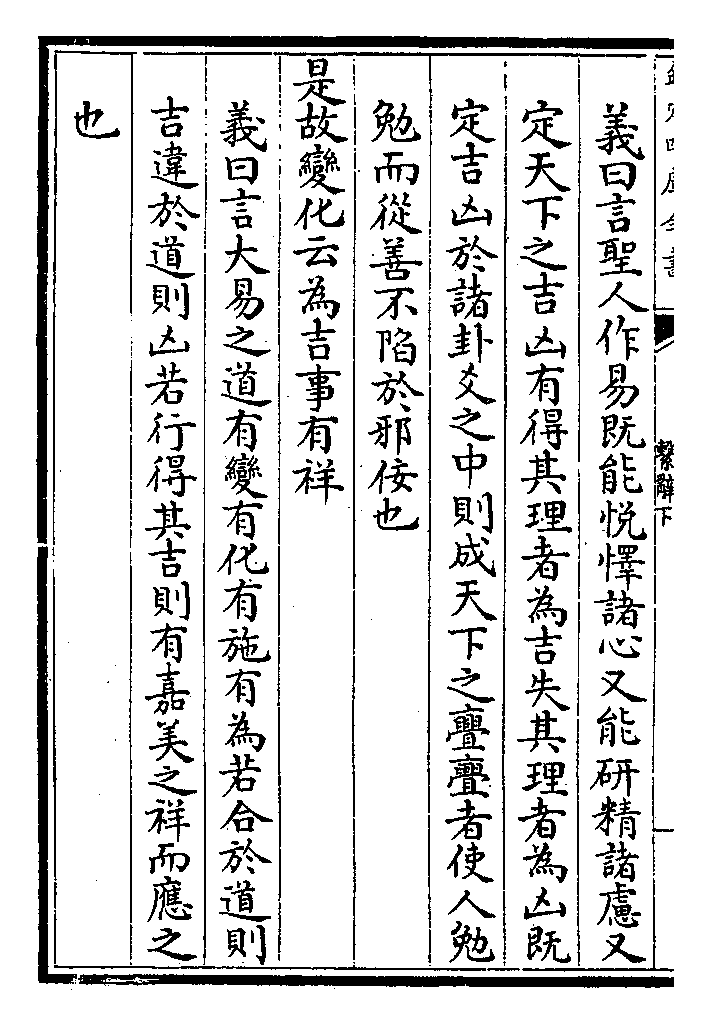 欽定四庫全書
繫辭下
義曰言聖人作易既能悅懌諸心又能研精諸慮又
定天下之吉凶有得其理者為吉失其理者為凶既
定吉凶於諸卦爻之中則成天下之亹亹者使人勉
勉而從善不陷於邪佞也
是故變化云為吉事有祥
義曰言大易之道有變有化有施有為若合於道則
吉違於道則凶若行得其吉則有嘉美之祥而應之
也